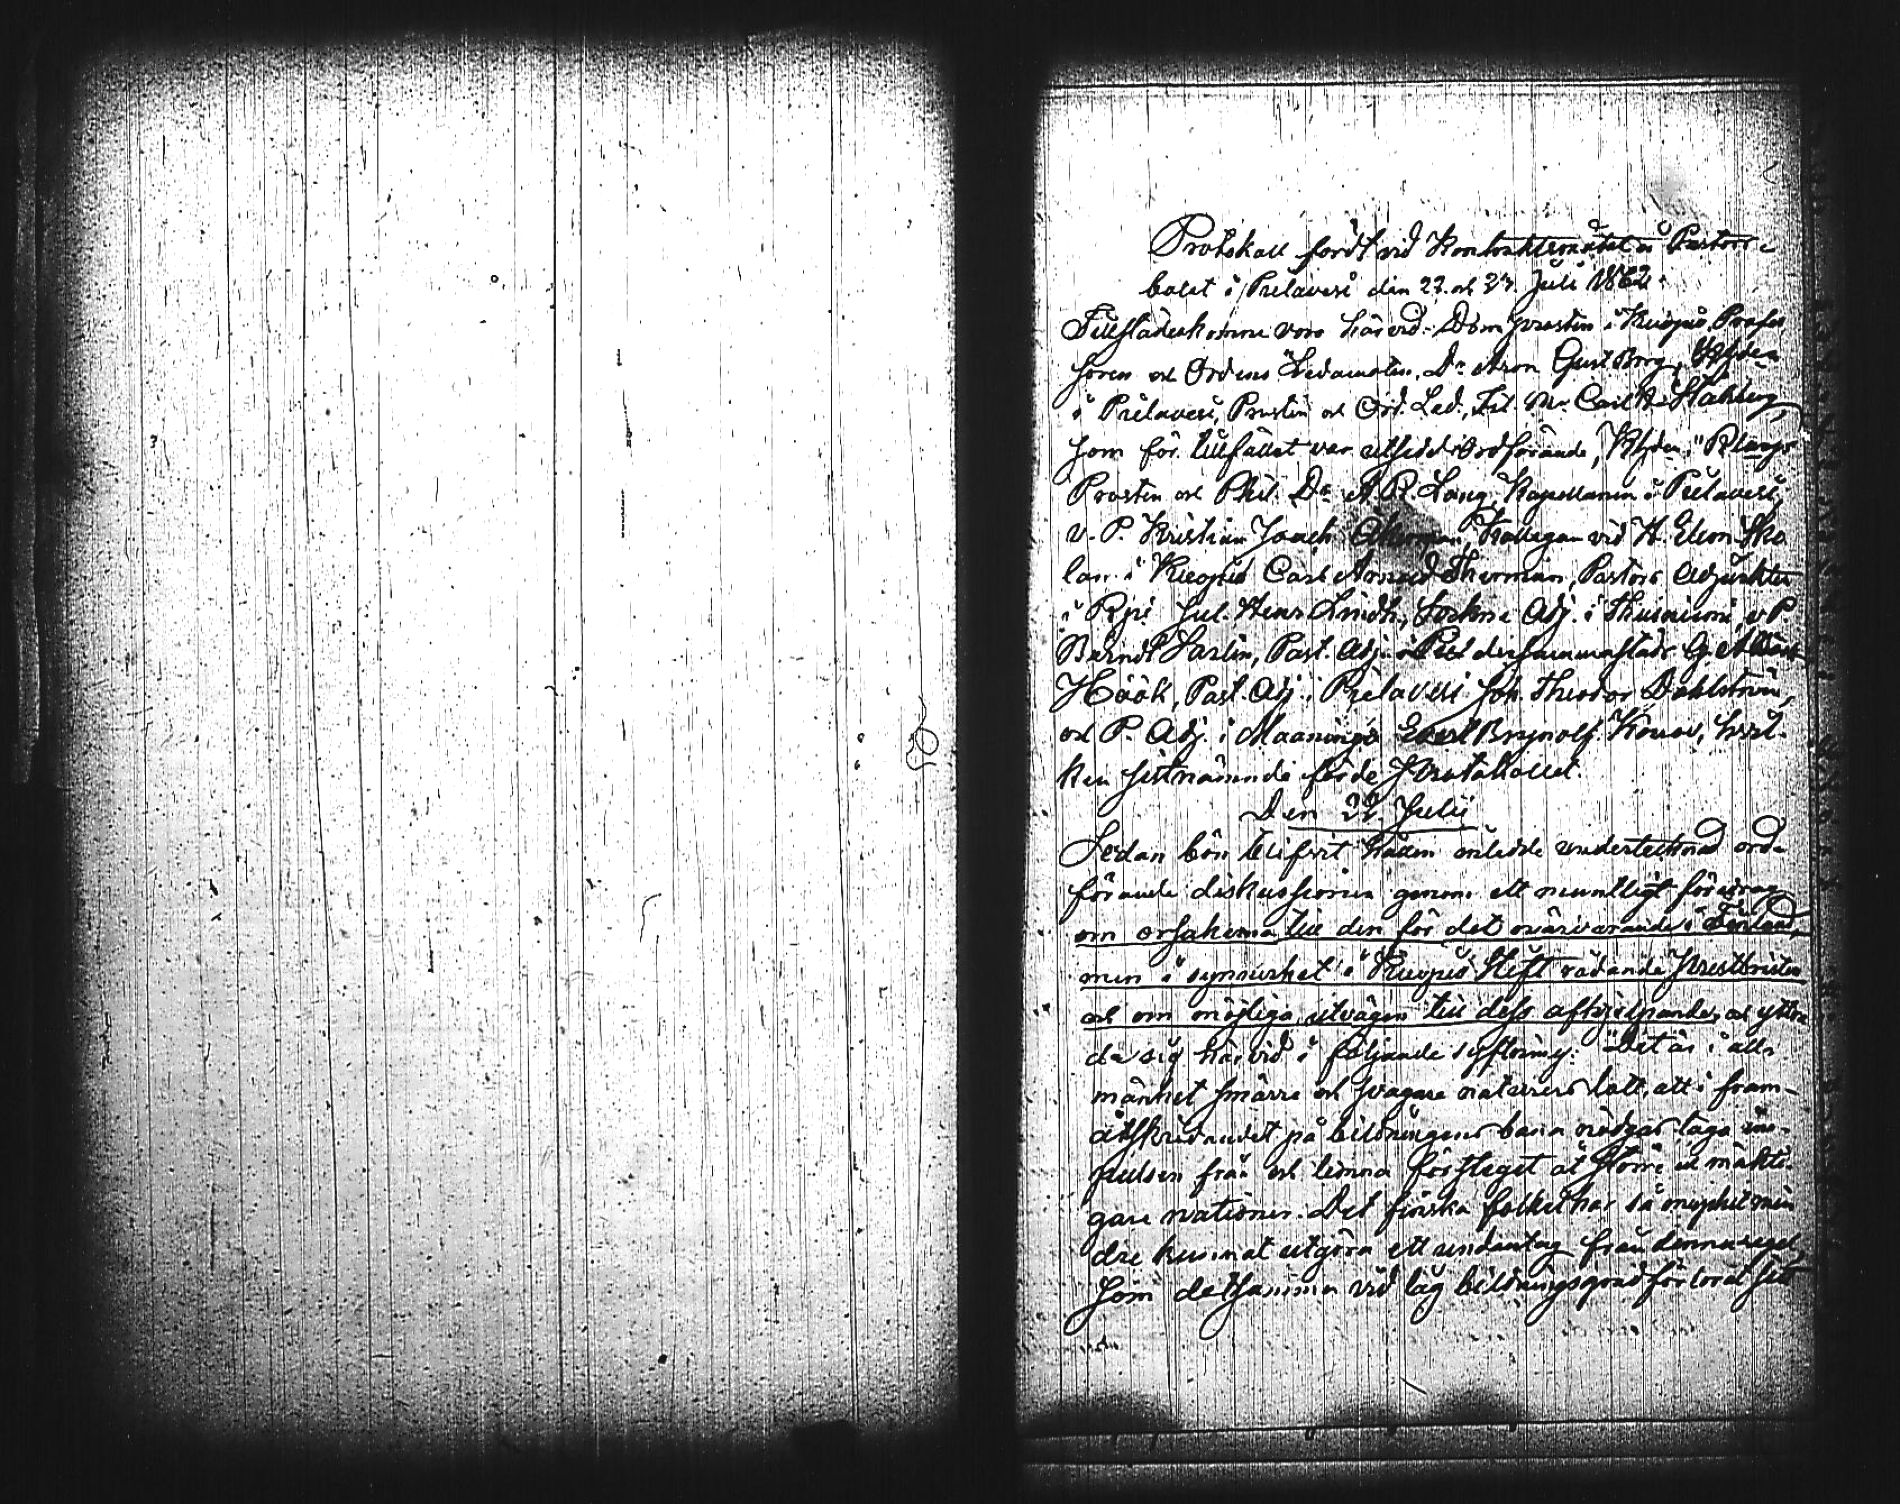 Protokoll fördt vid Kontraktsmötet å Pastors-
bolet i Pielavesi den 22. och 23. Juli 1862.
Tillstädeskomne voro härvid: Domprosten i Kuopio, Profes
soren och Ordens Ledamoten, Dr Aron Gust Borg, Khden
i Pielavesi, Prosten och Ord. Led., Fil. Mr Carl Stählberg,
som för tillfället var utsedd Ordförande, Khden i
Prosten och Phil. Dr A. R. Lang, Kapellanen i Pielavesi,
v. P. Kristian Joach Åkerman, Kollegan vid H. Elem. Sko
lan i Kuopio Carl Armand Therman, Pastors Adjunkten
i Jul. Henr Lindh, Sockne Adj. i v P
Berndt Sarlin, Past. Adj. dersammastäds G. Albert
Höök, Past. Adj. i Pielavesi Joh. Theodor Dahlström,
och P. Adj. i Maaninga Evert Brynolf Konow, hvil-
ken sistnämnde förde Protokollet.
Den 22. Julii
Sedan bön blifvit hållen inledde undertecknad ord-
förande diskussionen genom ett muntligt föredrag
om orsakerna till den för det närvarande i Finland,
men i synnerhet i Kuopio Stift rådande prestbristen
och om möjliga utvägar till dess afhjelpande, och yttra
de sig härvid i följande syftning: "Det är i all-
mänhet smärre och svagare naturers lott, att i fram-
åtskridandet på bildningens bana nödgas taga im-
pulsen från och lemna försteget åt större och mäkti
gare nationer. Det finska folket har så mycket min
dre kunnat utgöra ett undantag från denna regel,
som detsamma vid låg bildningsgrad förlorat sin